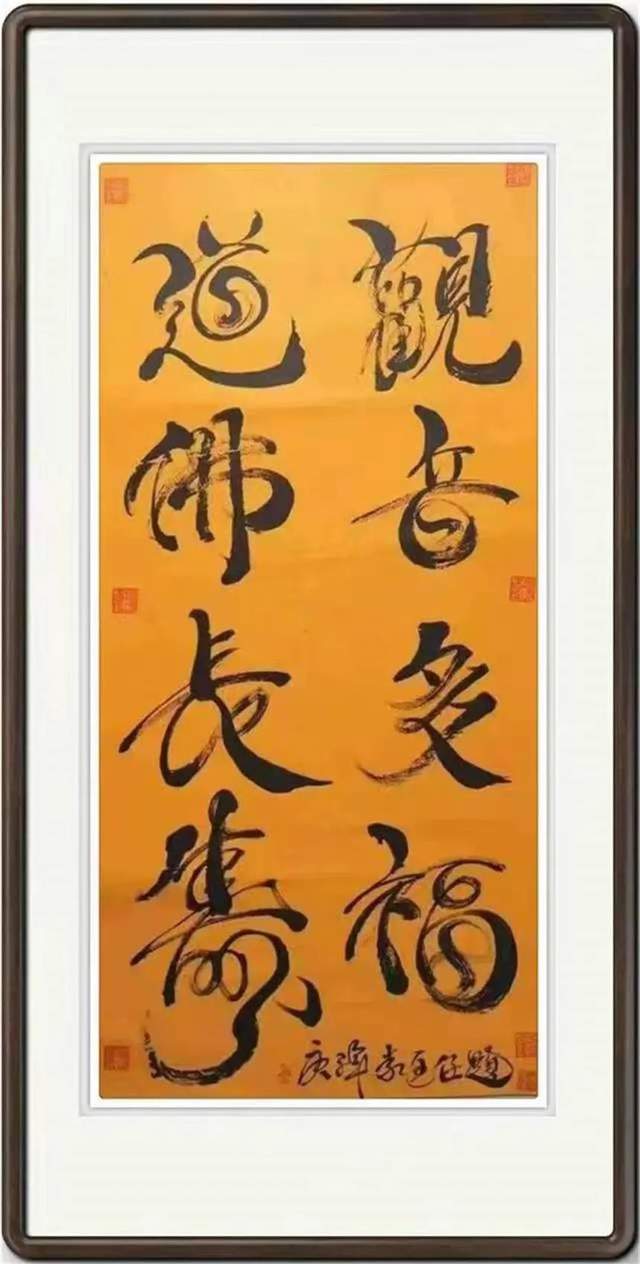 觀音多福
道佛長壽